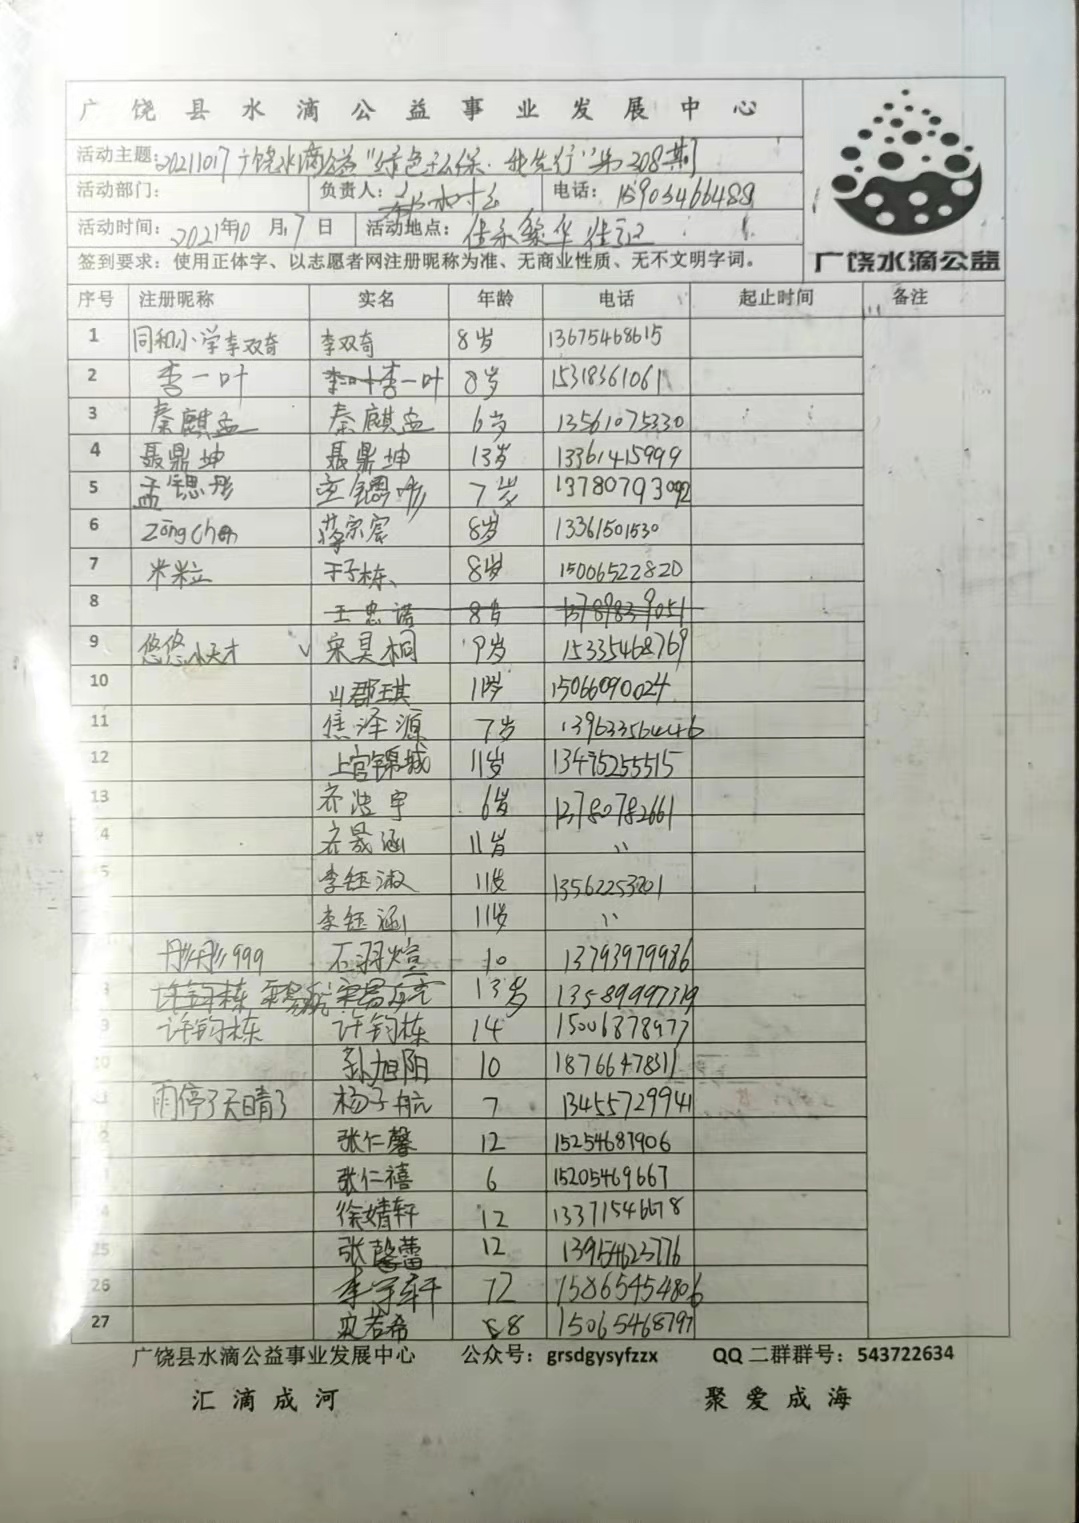 广饶县水滴公益事业发展中心
活动主题:20211017广饶水滴公益"绿色环保·我先行"第208期
活动部门: 负责人: 电话: 15905466488
活动时间: 2021年10月17日 活动地点: 佳永繁华
签到要求：使用正体字、以志愿者网注册昵称为准、无商业性质、无不文明字词。
广饶水滴公益
序号 注册昵称 实名 年龄 电话 起止时间 备注
1 同和小学李双奇 李双奇 8岁 13675468615
2 李一叶 李一叶 8岁 15318361061
3 秦麒孟 秦麒孟 6岁 13561075330
4 聂鼎坤 聂鼎坤 13岁 13361415999
5 孟锶彤 孟锶彤 7岁 13780793092
6 Zong Chen 蒋宗宸 8岁 13361501530
7 米粒 于子栋 8岁 15006522820
8 王忠诺 8岁 13789839051
9 悠悠小天才 宋昊桐 9岁 15335468769
10 郡琪 11岁 15066090024
11 焦泽源 7岁 13963356446
12 上官锦城 11岁 13475255515
13 齐浩宇 6岁 13780782661
4 齐晟涵 11岁 〃
5 李钰淑 11岁 13562253201
李钰涵 11岁 〃
彤彤999 石羽煊 10 13793979986
许钧栋 13岁 13589997319
9 许钧栋 许钧栋 14 15006878977
20 孙旭阳 10 18766478311
雨停了天晴了 杨子航 7 13455729941
2 张仁馨 12 15254687906
张仁禧 6 15205469667
4 徐婧轩 12 13371546678
25 张馨蕾 12 13954623776
26 李宇轩 12 15865454806
27 若希 8 15065468797
广饶县水滴公益事业发展中心 公众号：grsdgysyfzzx QQ二群群号：543722634
汇滴成河 聚爱成海